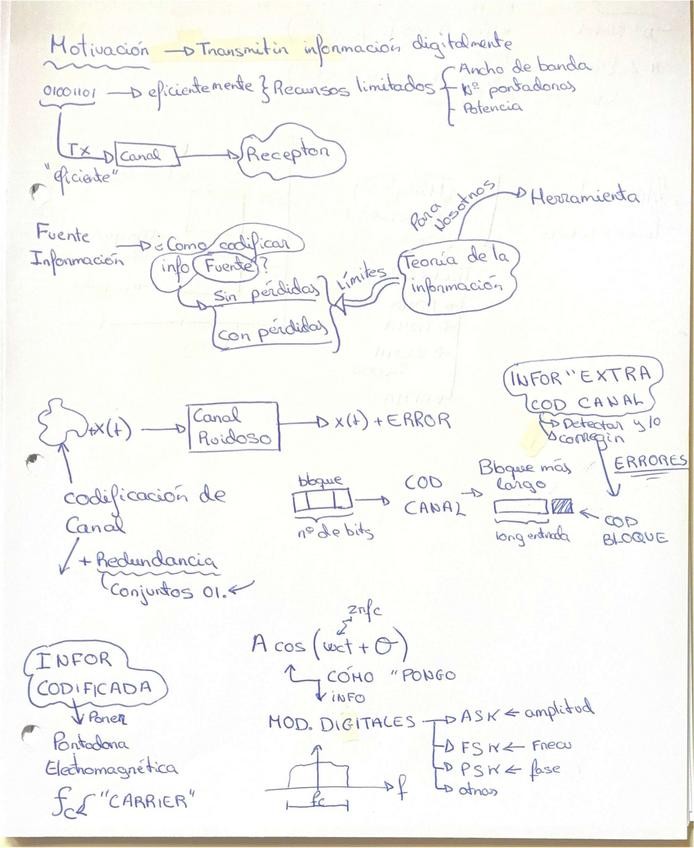 Motivación → Transmitir información digitalmente
01001101 → eficientemente } Recursos limitados {
Ancho de banda
Nº portadoras
Potencia
TX → Canal → Receptor
"eficiente"
Para nosotros → Herramienta
Fuente Información → ¿Como codificar
info Fuente?
Sin pérdidas
con pérdidas
Límites
Teoría de la
información
INFOR" EXTRA
COD CANAL
→ Detectar y/o
→ corregir
ERRORES
COD
BLOQUE
x(t) → Canal
Ruidoso → x(t) + ERROR
codificación de
Canal
+ Redundancia
Conjuntos 01.
bloque
nº de bits
→ COD
CANAL →
Bloque más
largo
long entrada
INFOR
CODIFICADA
Poner
Portadora
Electromagnética
fc "CARRIER"
2πfc
A cos (wct + θ)
CÓMO "PONGO
INFO
MOD. DIGITALES
→ ASK ← amplitud
→ FSK ← Frecu
→ PSK ← fase
→ otras
fc
f